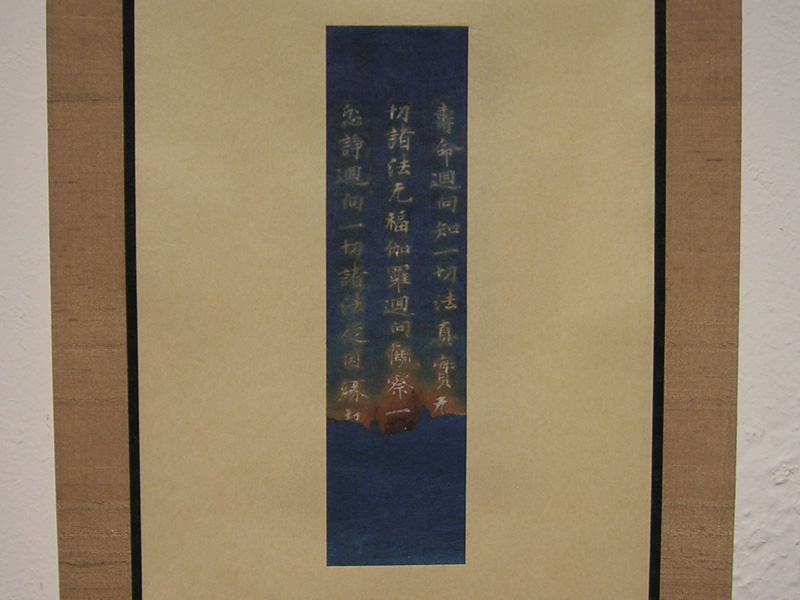 壽命迴向知一切法真實无
切諸法无福伽羅迴向觀察一
忿諍迴向一切諸法從因緣